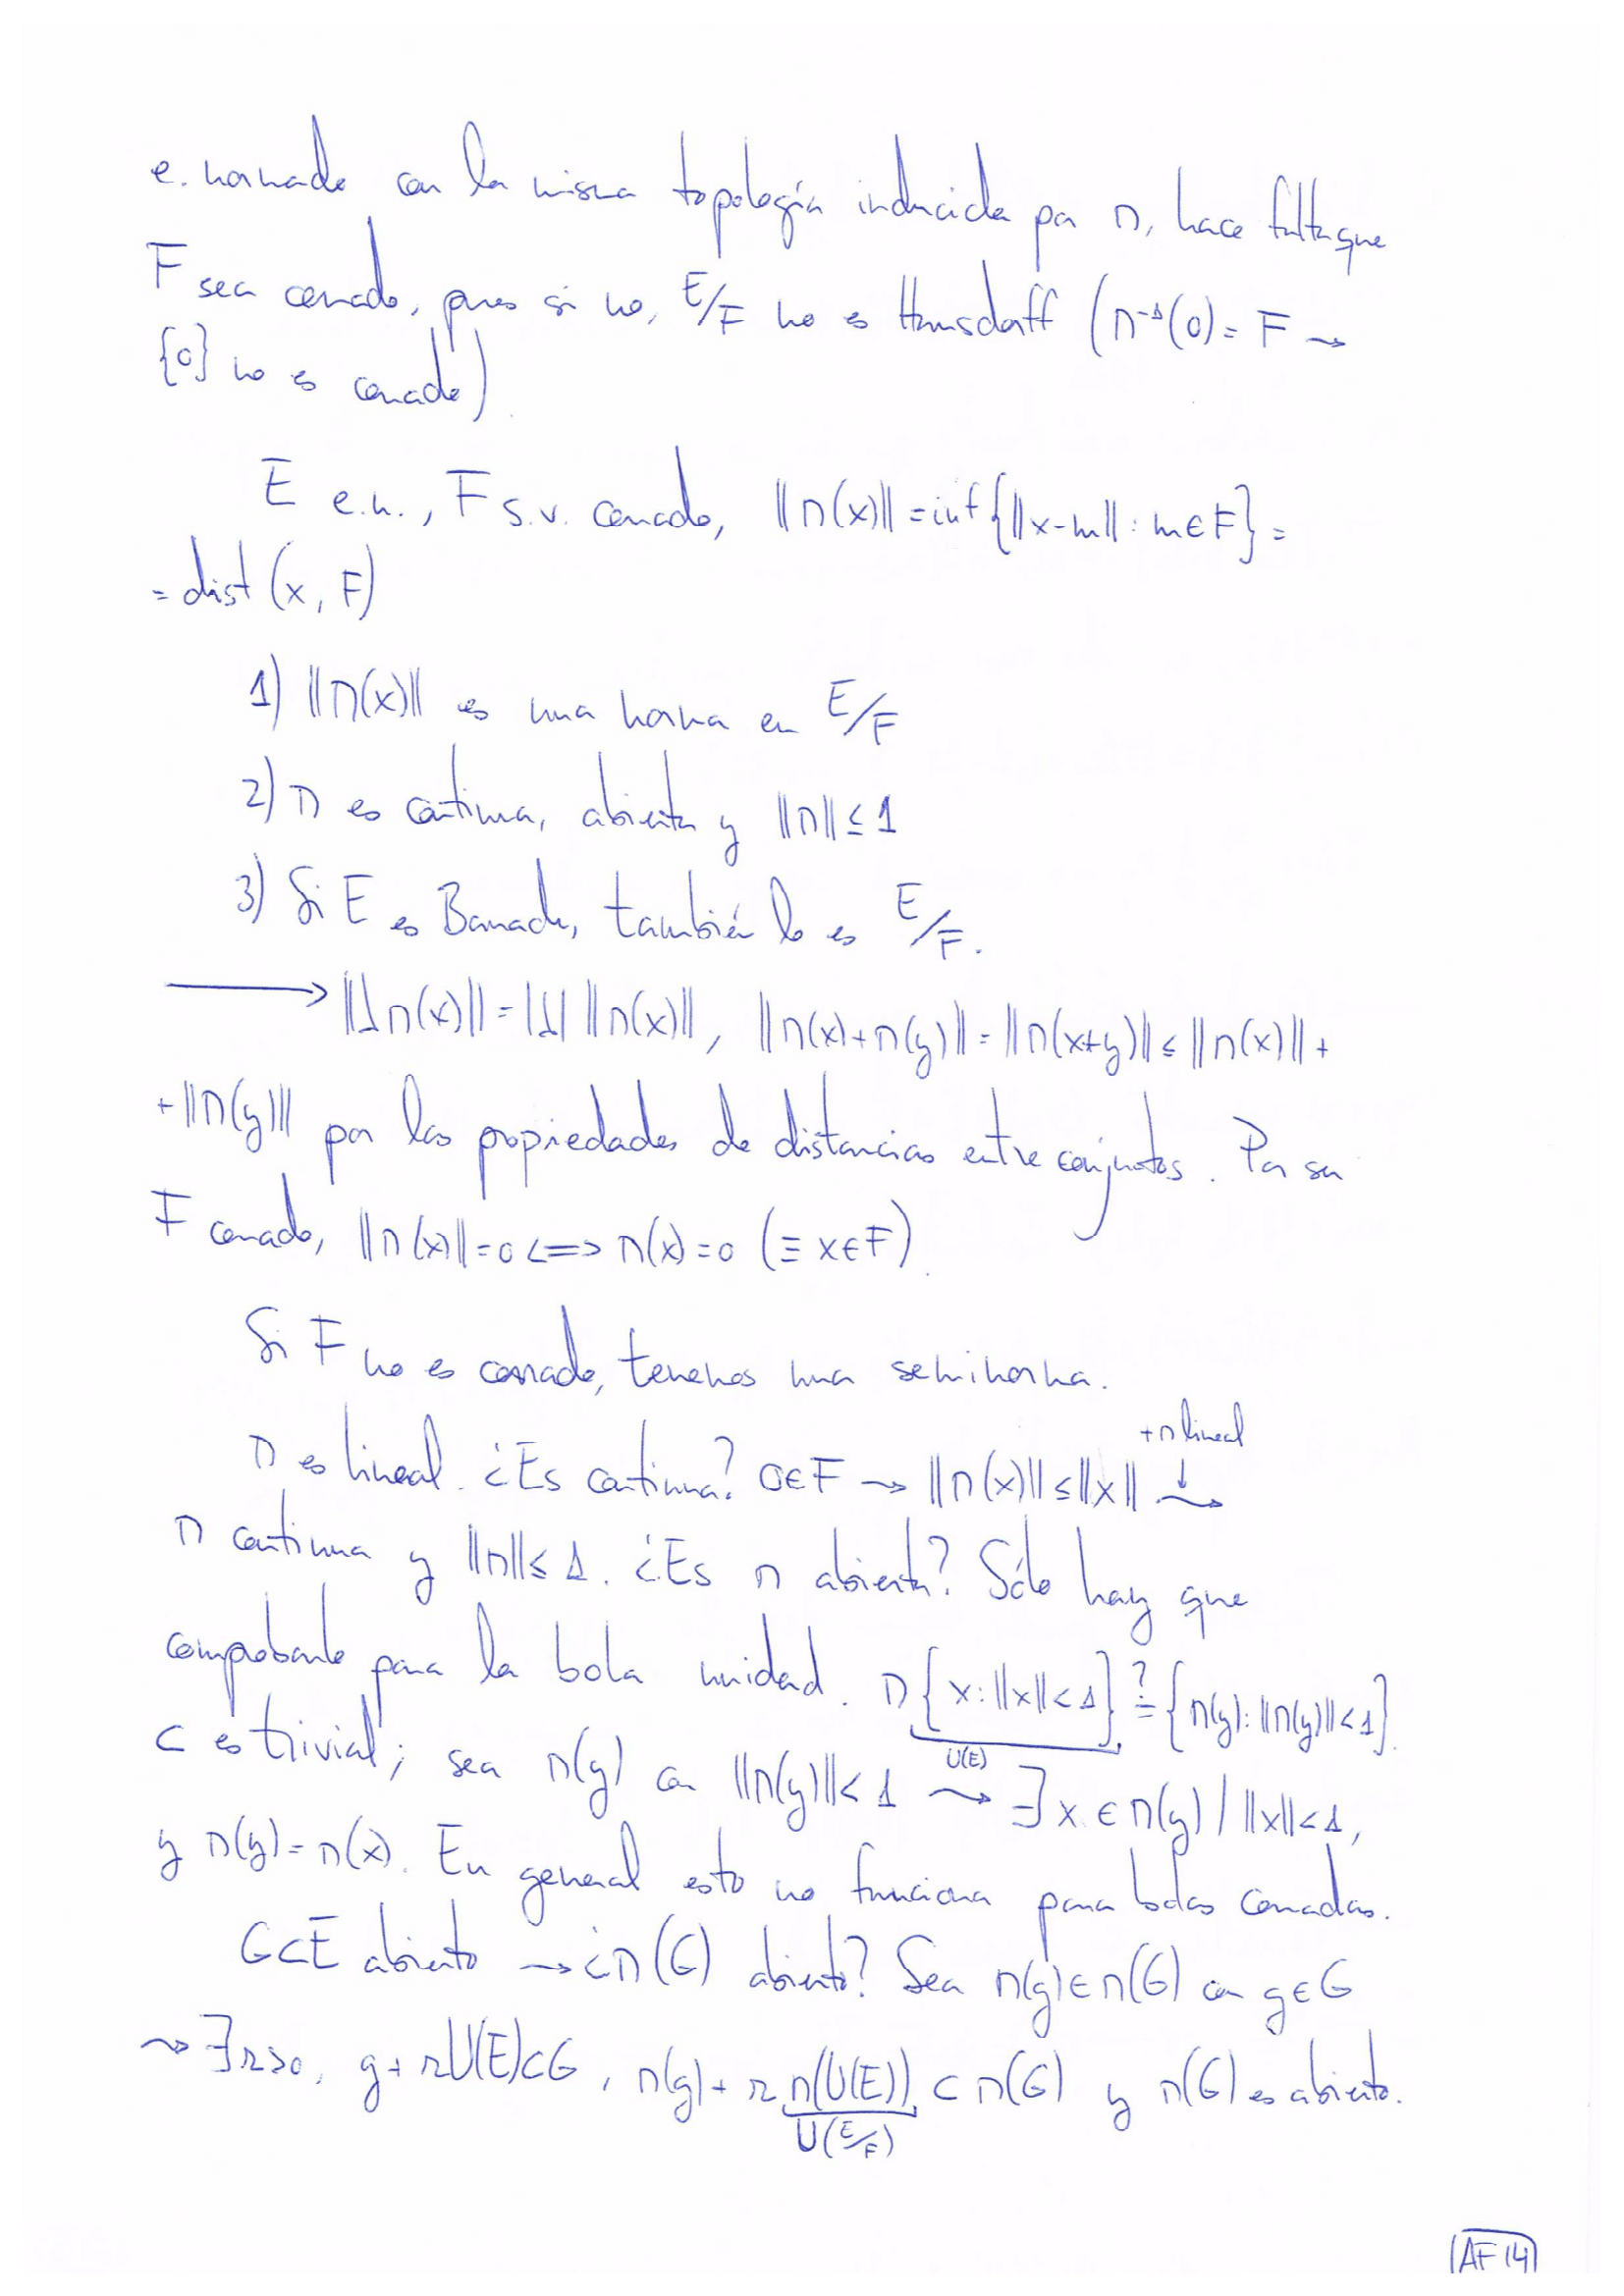 e. normado con la misma topología inducida por Π, hace falta que
F sea cerrado, pues si no, E/F no es Hausdorff (Π⁻¹(0) = F ⇝
{0} no es cerrado).
E e.n., F s.v. cerrado, ||Π(x)|| = inf{||x-m|| : m∈F} =
= dist (x, F)
1) ||Π(x)|| es una norma en E/F
2) Π es continua, abierta y ||Π|| ≤ 1
3) Si E es Banach, también lo es E/F.
⟶ ||λΠ(x)|| = |λ| ||Π(x)||, ||Π(x)+Π(y)|| = ||Π(x+y)|| ≤ ||Π(x)|| +
+ ||Π(y)|| por las propiedades de distancias entre conjuntos. Por ser
F cerrado, ||Π(x)|| = 0 <=> Π(x) = 0 (≡ x∈F).
Si F no es cerrado, tenemos una seminorma.
+Π lineal
Π es lineal. ¿Es continua? 0∈F ⇝ ||Π(x)|| ≤ ||x|| ↓⇝
Π continua y ||Π|| ≤ 1. ¿Es Π abierta? Sólo hay que
comprobarlo para la bola unidad. Π{x : ||x|| < 1} ≟ {Π(y) : ||Π(y)|| < 1}.
U(E)
⊂ es trivial; sea Π(y) con ||Π(y)|| < 1 ⇝ ∃ x ∈ Π(y) / ||x|| < 1,
y Π(y) = Π(x). En general esto no funciona para bolas cerradas.
G⊂E abierto → ¿Π(G) abierto? Sea Π(g) ∈ Π(G) con g∈G
⇝ ∃r>0, g + rU(E) ⊂ G, Π(g) + r Π(U(E)) ⊂ Π(G) y Π(G) es abierto.
U(E/F)
AF 14